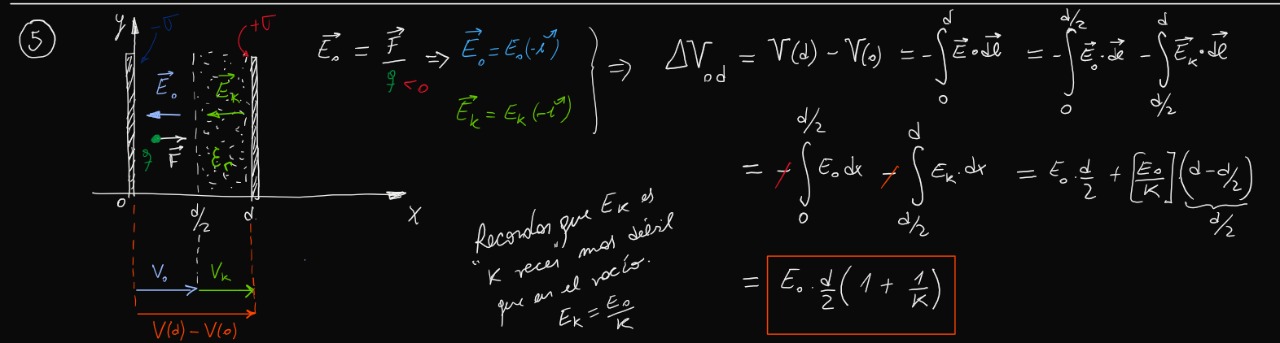 5
y
-σ
+σ
E⃗₀
E⃗ₖ
q
F⃗
εr
0
d/2
d
x
V₀
Vₖ
V(d) - V(0)
E⃗₀ = F⃗/q <0 ⇒ E⃗₀ = E₀(-i⃗)
E⃗ₖ = Eₖ(-i⃗)
} ⇒ ΔV₀d = V(d) - V(0) = -∫₀ᵈ E⃗ · dl⃗ = -∫₀^{d/2} E⃗₀ · dl⃗ - ∫_{d/2}^{d} E⃗ₖ · dl⃗
= -∫₀^{d/2} E₀ dx - ∫_{d/2}^{d} Eₖ · dx = E₀ · d/2 + [E₀/K] (d - d/2)
d/2
= E₀ · d/2 (1 + 1/K)
Recordar que Eₖ es
"K veces" mas débil
que en el vacío.
Eₖ = E₀/K